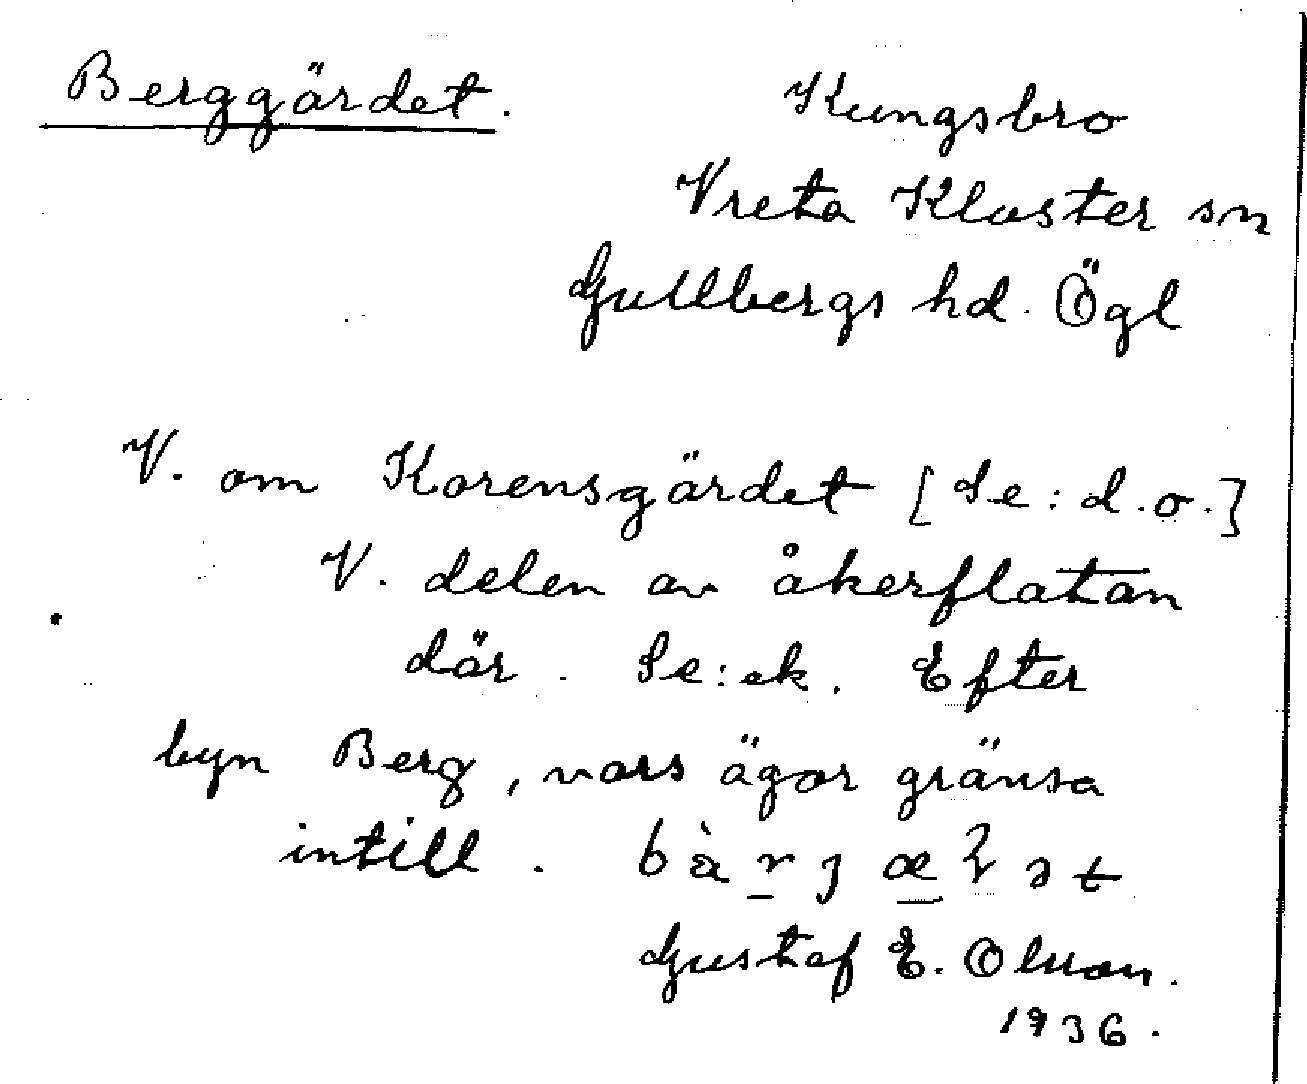 Berggärdet.
Kungsbro
Vreta Kloster sn
Gullbergs hd. Ögl
V. om Korensgärdet [Se: d.o.]
V. delen av åkerflatan
där. Se: ek. Efter
byn Berg, vars ägor gränsa
intill.
Gustaf E. Olsson.
1936.